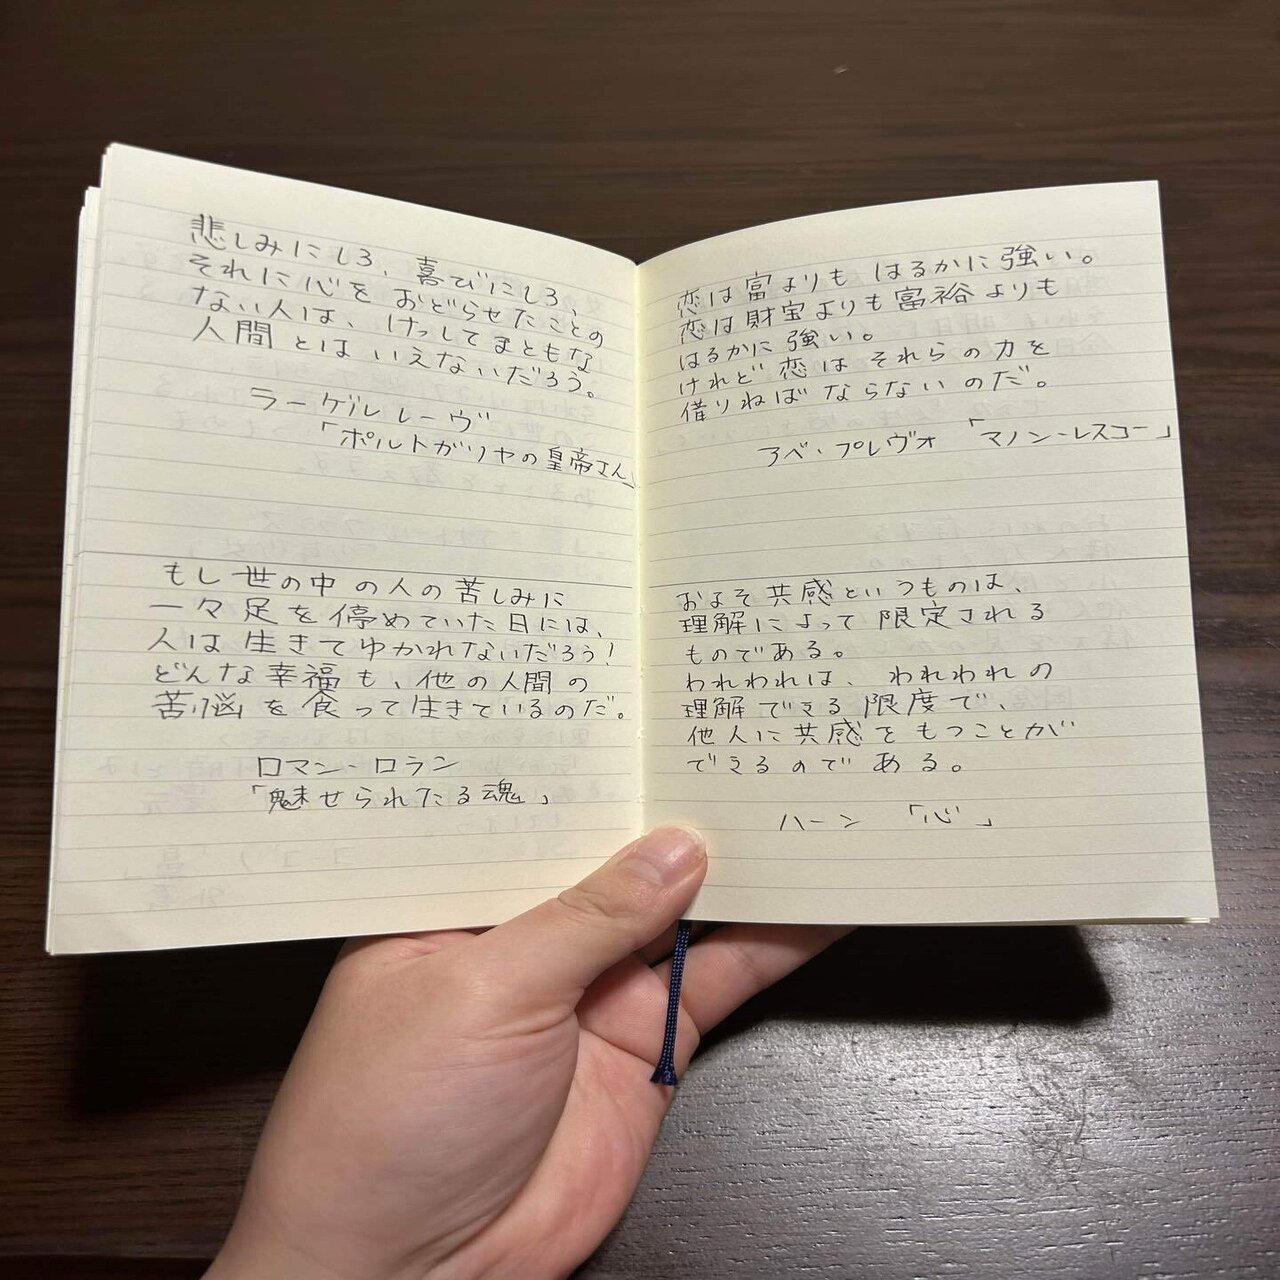 悲しみにしろ、喜びにしろ、
それに心をおどらせたことの
ない人は、けっしてまともな
人間とはいえないだろう。
ラーゲルレーヴ
「ポルトガリヤの皇帝さん」
もし世の中の人の苦しみに
一々足を停めていた日には、
人は生きてゆかれないだろう!
どんな幸福も、他の人間の
苦悩を食って生きているのだ。
ロマン・ロラン
「魅せられたる魂」
恋は富よりもはるかに強い。
恋は財宝よりも富裕よりも
はるかに強い。
けれど恋はそれらの力を
借りねばならないのだ。
アベ・プレヴォ「マノン・レスコー」
およそ共感というものは、
理解によって限定される
ものである。
われわれは、われわれの
理解できる限度で、
他人に共感をもつことが
できるのである。
ハーン「心」